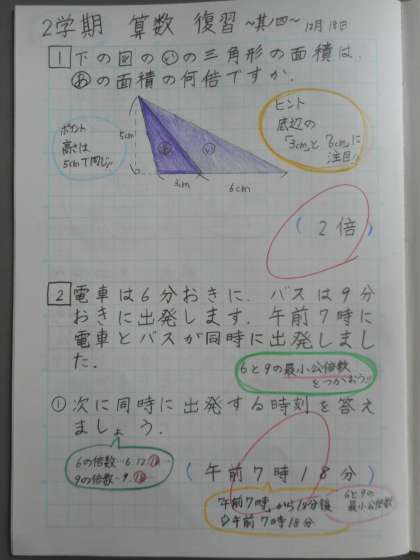 2学期 算数 復習 〜其ノ四〜 12月18日
1 下の図の㋑の三角形の面積は、
㋐の面積の何倍ですか.
ヒント
底辺の
「3cm」と「6cm」に
注目!
ポイント
高さは
5cmで同じ!!
5cm
㋐
㋑
3cm
6cm
( 2倍 )
2 電車は6分おきに、バスは9分
おきに出発します. 午前7時に
電車とバスが同時に出発しまし
た.
6と9の最小公倍数
をつかおう
① 次に同時に出発する時刻を答え
ましょう.
6の倍数…6.12.18
9の倍数…9.18
( 午前7時18分 )
午前7時から18分後
⇨午前7時18分
6と9の
最小公倍数